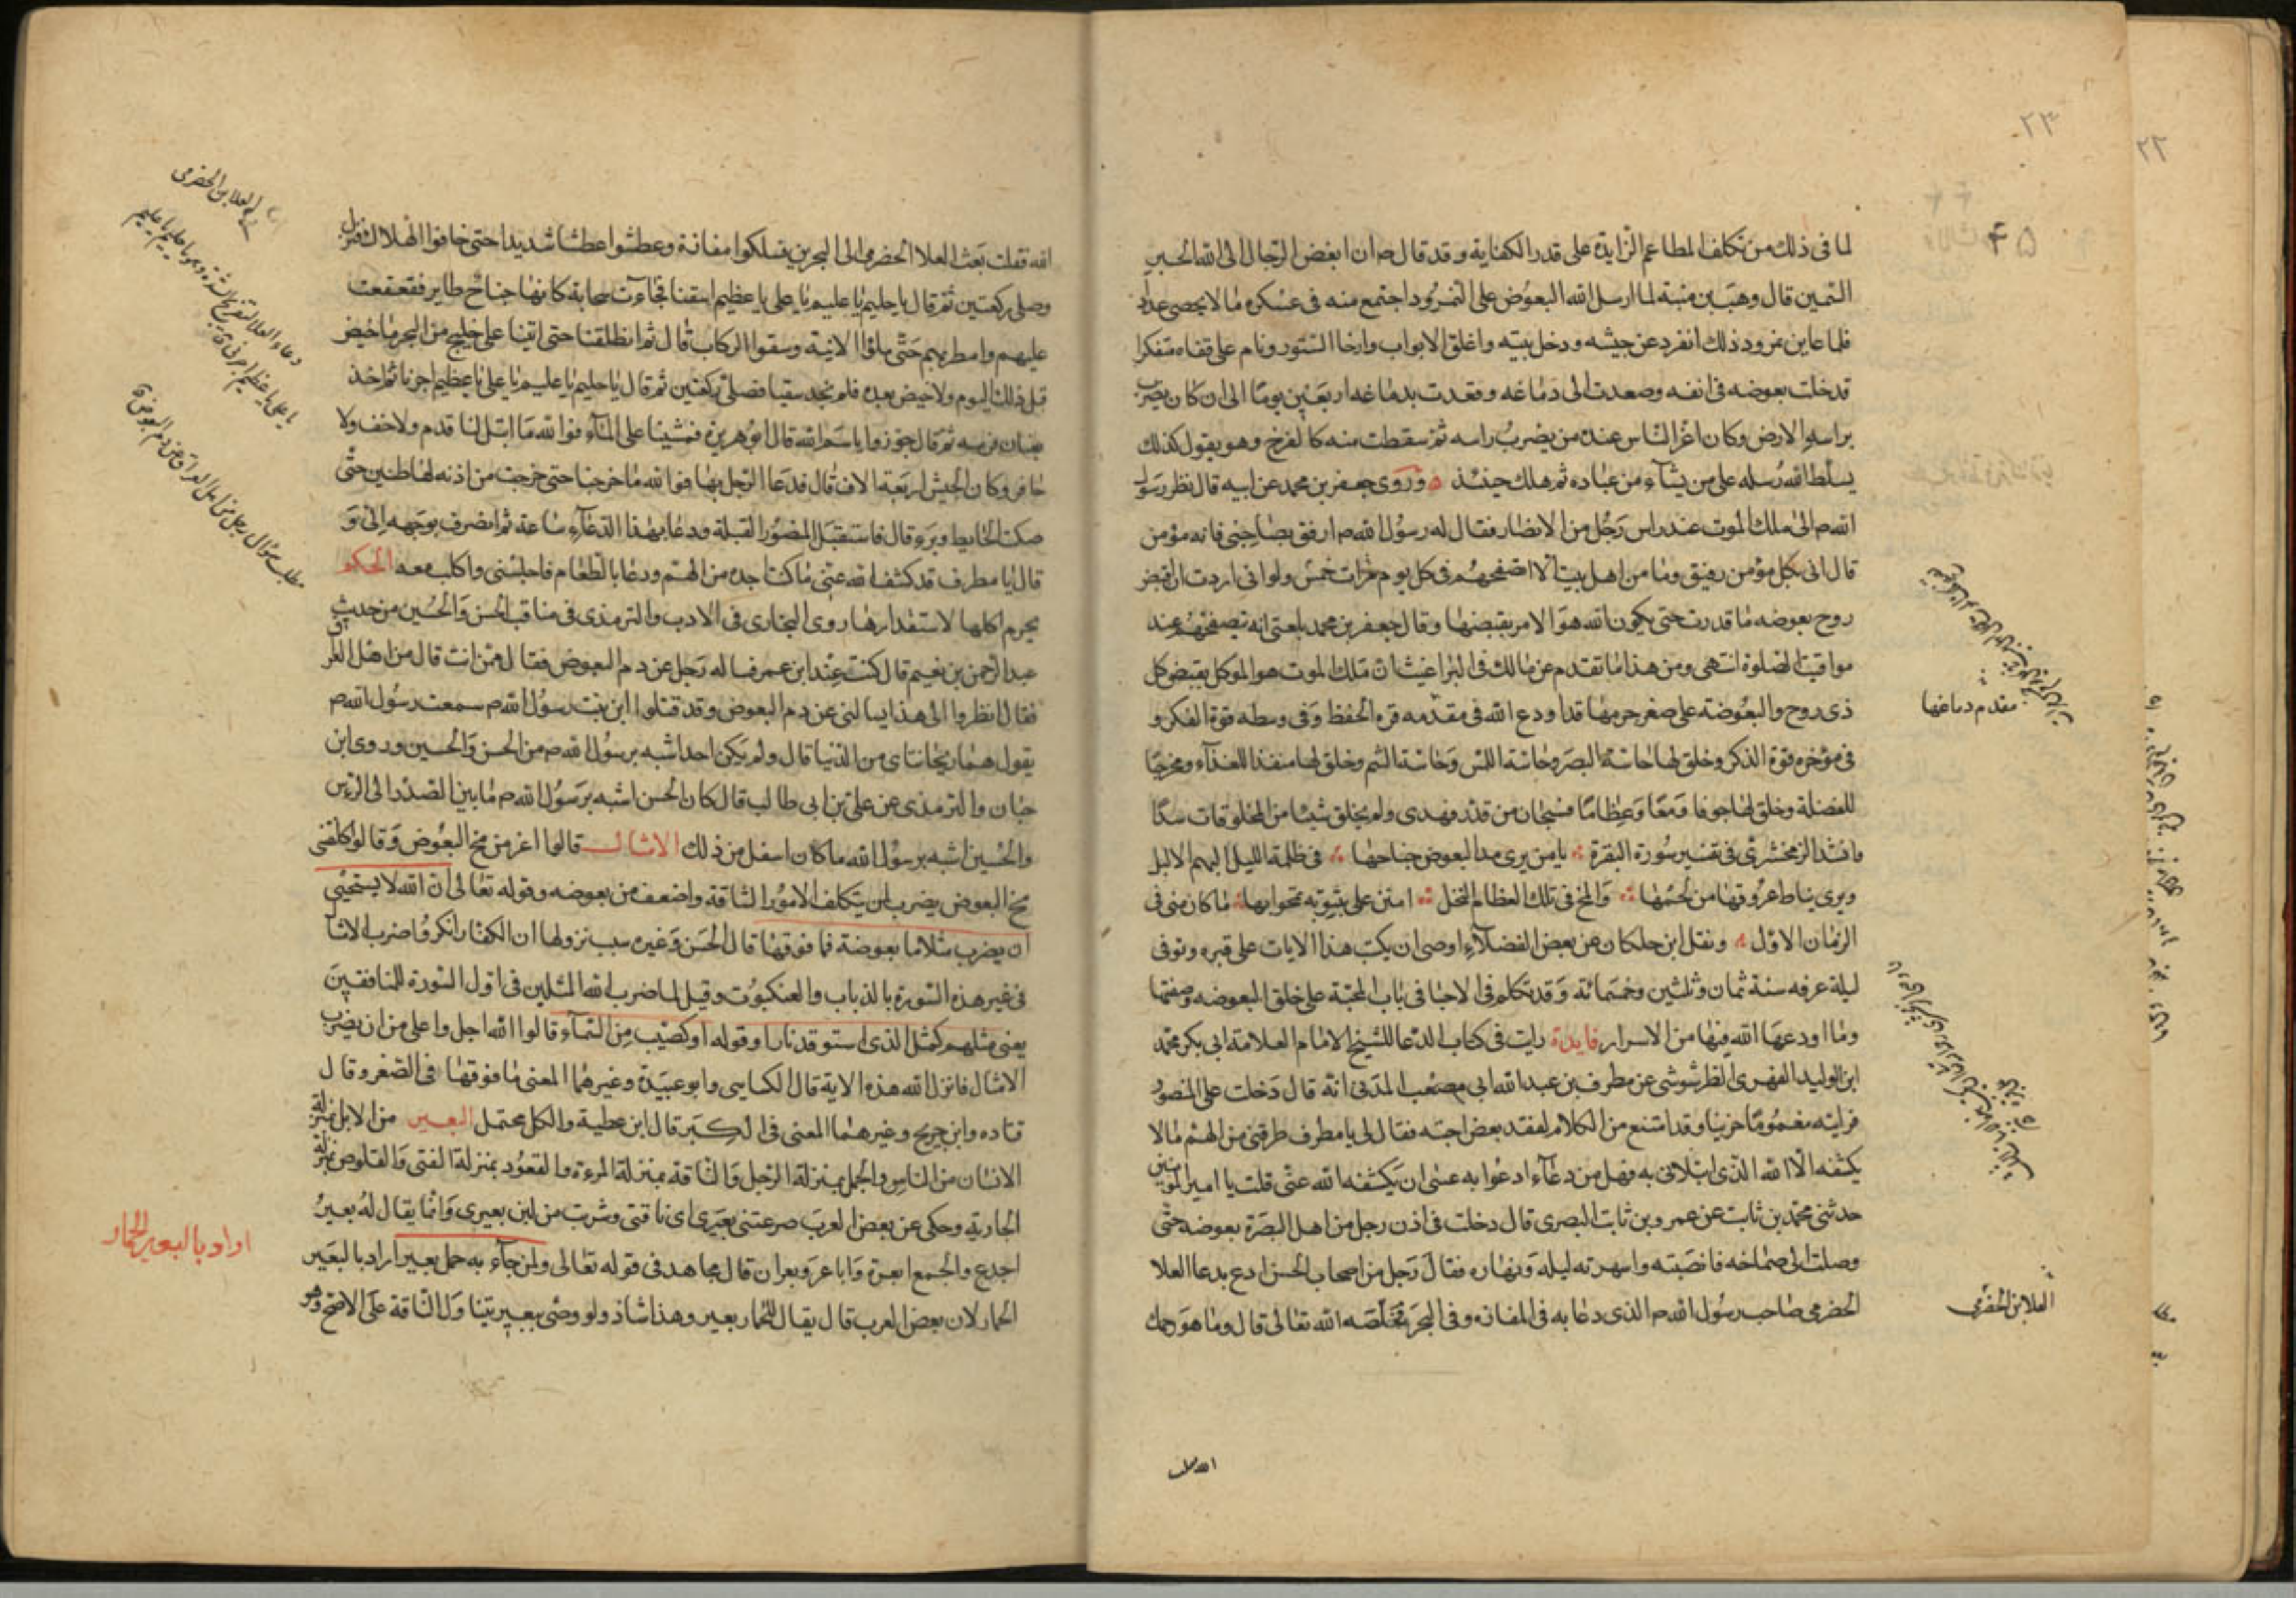 ٢٢
٢٣
٤٥
لما فى ذلك من تكلف المطاعم الزايدة على قدر الكفاية وقد قال ص ان ابغض الرجال الى الله الحبر
السمين قال وهب بن منبة لما ارسل الله البعوض على النمرود اجتمع منه فى عسكره ما لا يحصى عددا
فلما عاين نمرود ذلك انفرد عن جيشه ودخل بيته واغلق الابواب وارخا الستور ونام على قفاه متفكرا
فدخلت بعوضه فى انفه وصعدت الى دماغه وفعدت بدماغه اربعين يوما الى ان كان يضرب
براسه الارض وكان اعز الناس عنده من يضرب راسه ثم سقطت منه كالفرخ وهو يقول كذلك
يسلط الله رسله على من يشاء من عباده ثم هلك حينئذ وروى جعفر بن محمد عن ابيه قال نظر رسول
الله ص الى ملك الموت عند راس رجل من الانصار فقال له رسول الله ص ارفق بصاحبنى فانه مؤمن
قال انى بكل مؤمن رفيق وما من اهل بيت الا اتصفحهم فى كل يوم مرات خمس ولو انى اردت ان اقبض
روح بعوضه ما قدرت حتى يكون الله هو الامر بقبضها وقال جعفر بن محمد بلغنى انه يتصفحهم عند
مواقيت الصلوة انتهى ومن هذا ما تقدم عن مالك فى البراغيث ان ملك الموت هو الموكل بقبض كل
ذى روح والبعوضه على صغر جرمها قد اودع الله فى مقدمه قوه الحفظ وفى وسطه قوة الفكر و
مقدم دماغها
فى مؤخره قوة الذكر وخلق لها حاسة البصر وحاسة اللمس وحاسة الشم وخلق لها منفذا للغذآء ومخرجا
للفضلة وخلق لها جوفا ومعا وعظاما فسبحان من قدر فهدى ولم يخلق شيئا من المخلوقات سدا
وانشد الزمخشرى فى تفسير سورة البقرة يا من يرى مد البعوض جناحها فى ظلمة الليل البهم الاليل
ويرى نياط عروقها من لحمها والمخ فى تلك العظام النخل امنن على بتوبه تمحو ابها ما كان منى فى
الزمان الاول ونقل ابن خلكان عن بعض الفضلآء اوصى ان يكتب هذا الايات على قبره وتوفى
ليلة عرفه سنة ثمان وثلثين وخمسمائة وقد تكلم فى الاحيا فى باب المحبة على خلق البعوضه وصفتها
وما اودعها الله فيها من الاسرار فايدة رايت فى كتاب الدعا للشيخ الامام العلامة ابى بكر محمد
ابن الوليد الفهرى الطرشوشى عن مطرف بن عبد الله ابى مصعب المدنى انه قال دخلت على المنصور
فرايته مغموما حزينا وقد امتنع من الكلام لفقد بعض احبته فقال لى يا مطرف طرقنى من الهم ما لا
يكشفه الا الله الذى ابتلانى به فهل من دعآء ادعوا به عسى ان يكشفه الله عنى قلت يا امير المومنين
حدثنى محمد بن ثابت عن عمرو بن ثابت البصرى قال دخلت فى اذن رجل من اهل البصرة بعوضه حتى
وصلت الى صماخه فانصبته واسهرته ليله ونهاره فقال رجل من اصحاب الحسن ادع بدعا العلا
الحضرمى صاحب رسول الله ص الذى دعا به فى المفازه وفى البحر فخلصه الله تعالى قال وما هو رحمك
العلا بن الحضرمى
الله فقلت بعث العلا الحضرمى الى البحرين فسلكوا مفازة وعطشوا عطشا شديدا حتى خافوا الهلاك فنزل
وصلى ركعتين ثم قال يا حليم يا عليم يا على يا عظيم اسقنا فجاءت سحابة كانها جناح طاير فقعقعت
عليهم وامطرتهم حتى ملؤا الانية وسقوا الركاب قال ثم انطلقنا حتى اتينا على خليج من البحر ما خيض
قبل ذلك اليوم ولا خيض بعده فلم نجد سقيا فصلى ركعتين ثم قال يا حليم يا عليم يا على يا عظيم اجزنا ثم اخذ
بعنان فرسه ثم قال جوزوا باسم الله قال ابو هريرة فمشينا على المآء فوالله ما ابتل لنا قدم ولا خف ولا
حافر وكان الجيش اربعة الاف قال فدعا الرجل بها فوالله ما خرجنا حتى خرجت من اذنه لها طنين حتى
صكت الحايط وبرء قال فاستقبل المنصور القبلة ودعا بهذا الدعآء ساعة ثم انصرف بوجهه الى و
قال يا مطرف قد كشف الله عنى ما كنت اجده من الهم ودعا بالطعام فاجلسنى واكلت معه الحكم
يحرم اكلها لاستقذارها روى البخارى فى الادب والترمذى فى مناقب الحسن والحسين من حديث
عبد الرحمن بن نعيم قال كنت عند ابن عمر فساله رجل عن دم البعوض فقال ممن انت قال من اهل العراق
فقال انظروا الى هذا يسالنى عن دم البعوض وقد قتلوا ابن بنت رسول الله ص سمعت رسول الله ص
يقول هما ريحانتاى من الدنيا قال ولم يكن احدا شبه برسول الله ص من الحسن والحسين وروى ابن
حبان والترمذى عن على بن ابى طالب قال كان الحسن اشبه برسول الله ص ما بين الصدر الى الرس
والحسين اشبه برسول الله ما كان اسفل من ذلك الامثال قالوا اعز من مخ البعوض وقالوا كلفنى
مخ البعوض يضرب لمن يتكلف الامور الشاقة واضعف من بعوضه وقوله تعالى ان الله لا يستحيى
ان يضرب مثلا ما بعوضة فما فوقها قال الحسن وغيره سبب نزولها ان الكفار انكروا ضرب الامثا
فى غير هذه السورة بالذباب والعنكبوت وقيل لما ضرب الله المثلين فى اول السورة للمنافقين
يعنى مثلهم كمثل الذى استوقد نارا وقوله او كصيب من السمآء قالوا الله اجل واعلى من ان يضرب
الامثال فانزل الله هذه الاية قال الكسايى وابو عبيدة وغيرهما المعنى ما فوقها فى الصغر وقال
قتاده وابن جريح وغيرهما المعنى فى الكبر قال ابن عطية والكل محتمل البعير من الابل بمنزلة
الانسان من الناس والجمل بمنزلة الرجل والناقة بمنزلة المرءة والقعود بمنزلة الفتى والقلوص بمنزلة
الجارية وحكى عن بعض العرب صرعتنى بعيرى اى ناقتى وشربت من لبن بعيرى وانما يقال له بعير
اجدع والجمع ابعرة واباعر وبعران قال مجاهد فى قوله تعالى ولمن جآء به حمل بعير اراد بالبعير
الحمار لان بعض العرب قال يقال للحمار بعير وهذا شاذ ولو وصى ببعير تينا ول الناقة على الاصح وهو
العلا بن الحضرمى
دعاء العلا
يا على يا عظيم
مطلب سؤال رجل من اهل العراق عن دم البعوضة
اراد بالبعير الحمار
الله فقلت